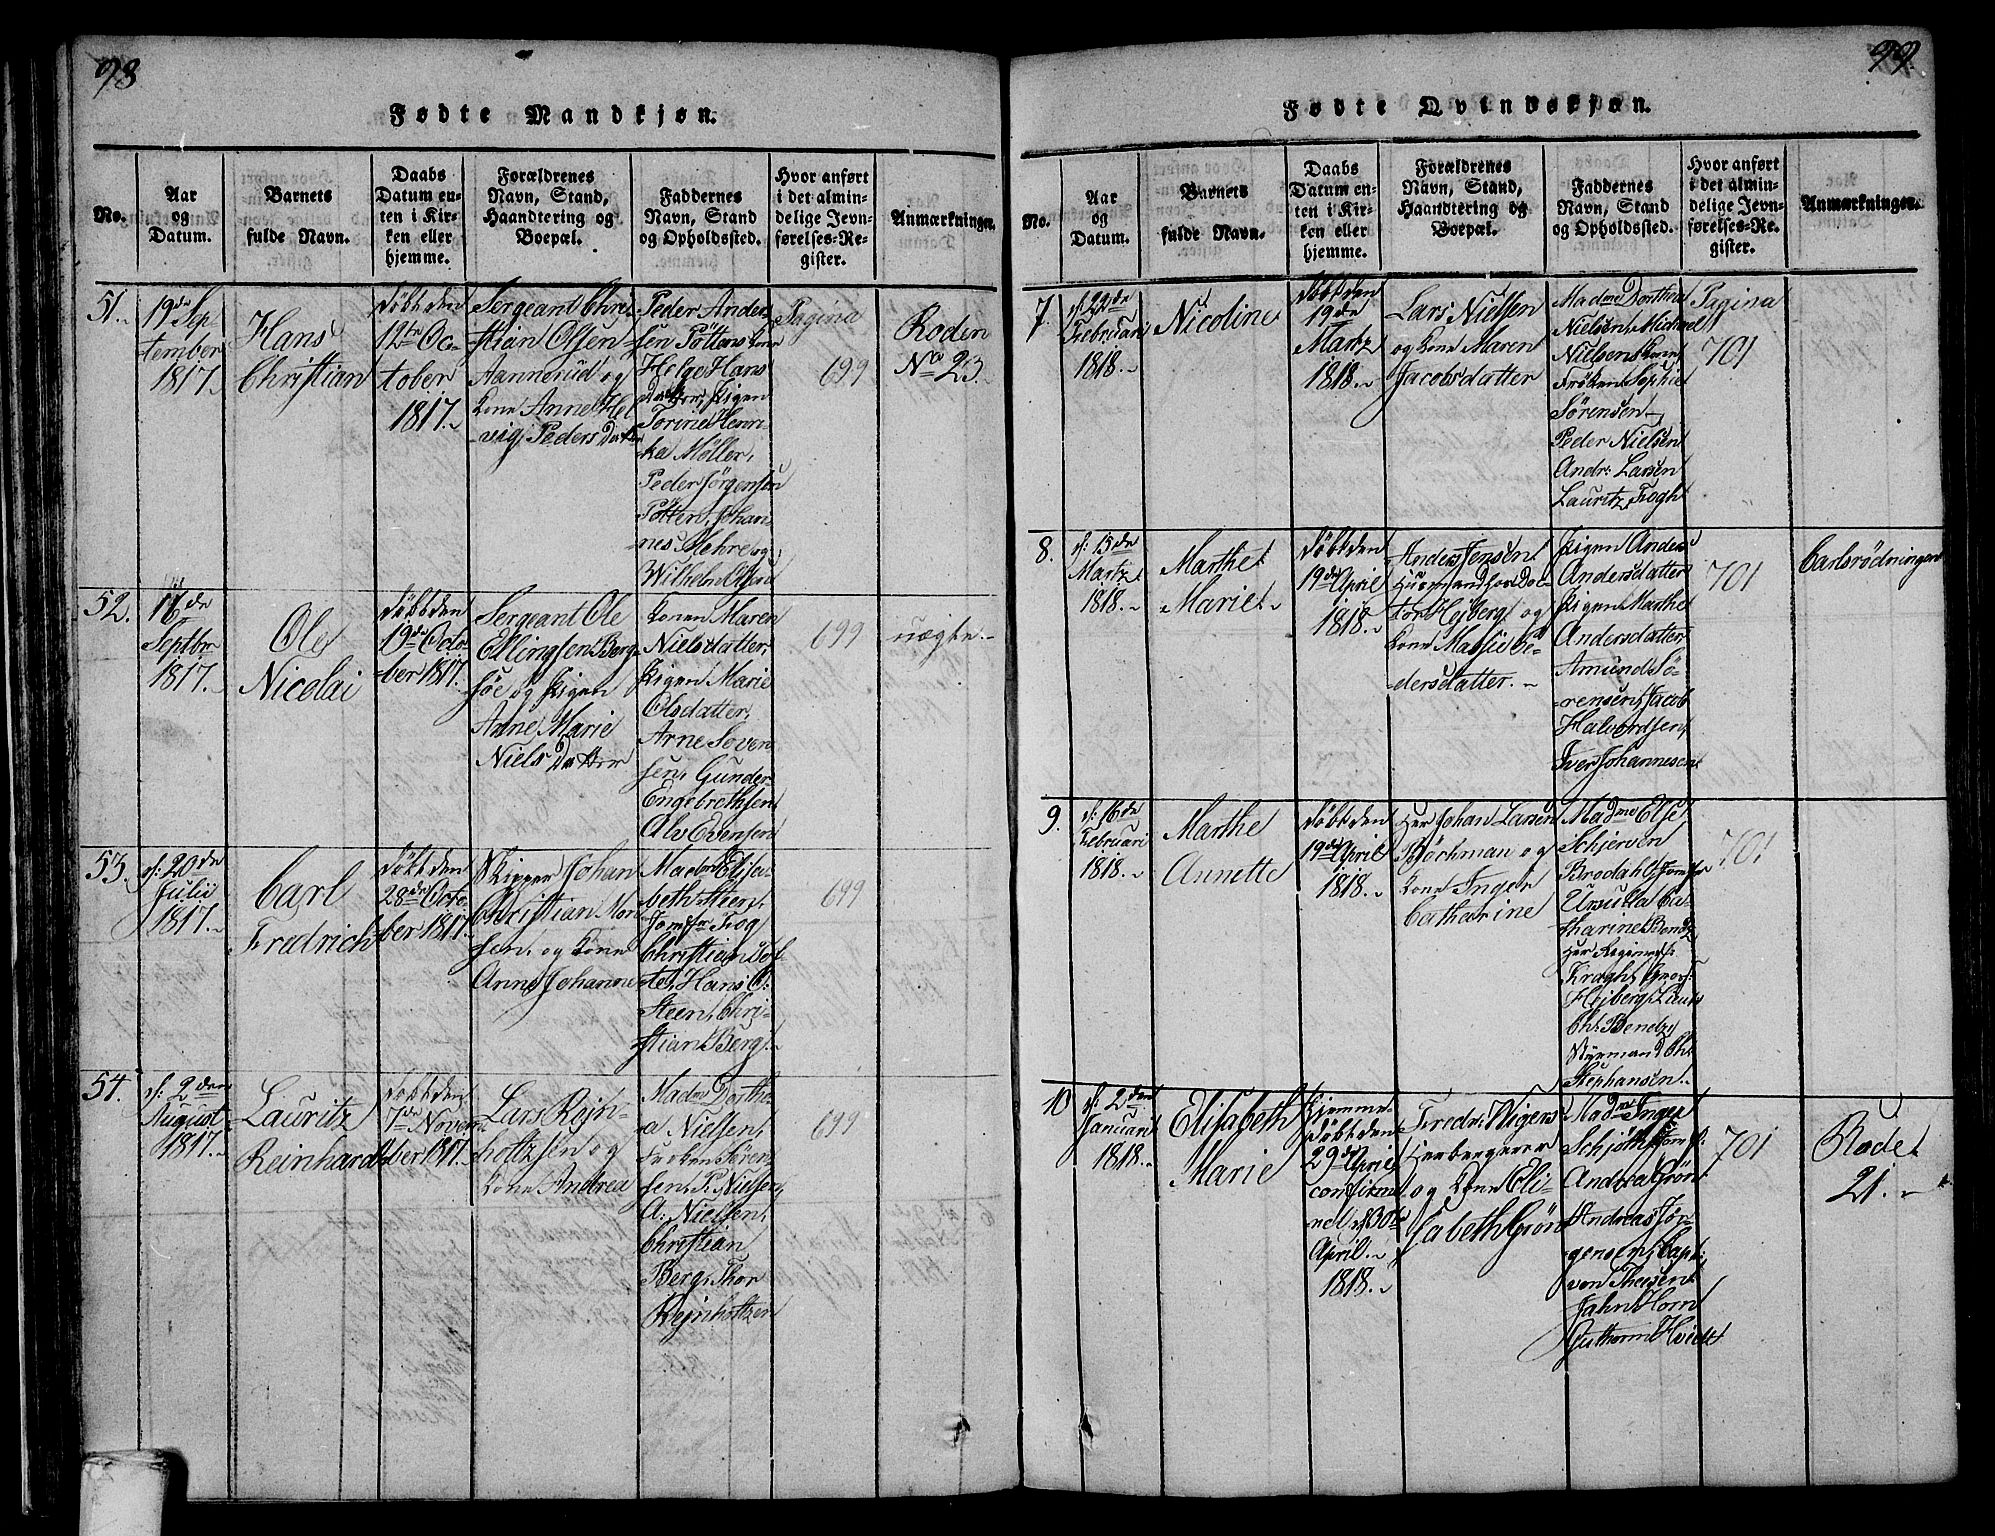 98
Fødte Mandkjøn.
No.
Aar
og
Datum.
Barnets
fulde Navn.
Daabs
Datum en-
ten i Kir-
ken eller
hjemme.
Forældrenes
Navn, Stand,
Haandtering og
Boepæl.
Faddernes
Navn, Stand
og Opholdssted.
Hvor anført
i det almin-
delige Jevn-
førelses-Re-
gister.
Anmærkninger.
51.
19de Sep
tember
1817.
Hans
Christian
Døbt den
12te Oc-
tober
1817.
Sergeant Chri
stian Olsen
Aannerud og
Kone Anne Hel
vig Peders Datter
Peder Ander
sen Pöttens Kone
Helge Hans
Datter, Pigen
Torine Henri
ka Møller,
Peder Jörgensen
Pötten, Johan
nes Mehre og
Wilhelm
Pagina
699
Roden
No 23.
52.
de
Septbr
1817.
Ole
Nicolai
Døbt den
19de Octo
ber 1817.
Sergeant Ole
Ellingsen Berg
söe og Pigen
Anne Marie
Niels Datter
Konen Maren
Nielsdatter,
Pigen Marie
Olsdatter,
Arne Soven
sen, Gunder
Engebrethsen
Alv Evensen
699
uægte.
53.
d: 20de
Julii
1817.
Carl
Fredrich
Døbt den
28de Octo
ber 1817.
Skipper Johan
Christian
sen og Kone
Anne Johanne
Madme Elisa
beth Steen,
Jomfr Fog
Christian
te, Hans C:
Steen, Chri
stian Berg.
699
54.
d: 2den
August
1817.
Lauritz
Reinhardt
Døbt den
7de Novem
ber 1817.
Lars Rejn-
holtzen og
Kone Andrea
Madme Dorthe
a Nielsen,
Frøken Søren
sen, P: Nielsen,
A: Nielsen,
Christian
Berg, Thor
Rejnholtzen
699
99.
Fødte Qvindekjøn.
No.
Aar
og
Datum.
Barnets
fulde Navn.
Daabs
Datum en-
ten i Kir-
ken eller
hjemme.
Forældrenes
Navn, Stand,
Haandtering og
Boepæl.
Faddernes
Navn, Stand
og Opholdssted.
Hvor anført
i det almin-
delige Jevn-
førelses-Re-
gister.
Anmærkninger.
7.
d: 22de
Februari
1818.
Nicoline
Døbt den
19de
Martz
1818.
Lars Nielsen
og Kone Maren
Jacobsdatter
Madme Dorthea
Nielsen, Michael
Nielsens Kone,
Frøken Sophie
Sørensen
Peder Nielsen
Andr: Larsen
Lauritz Fogh
Pagina
701
8.
d: 15de
Martz
1818.
Marthe
Marie
Døbt den
19de April
1818.
Anders Jensen
Huusmand hos Doc
tor Hejberg og
Kone Mari Pe
dersdatter.
Pigen
Andersdatter
Pigen Marthe
Andersdatter
Amund Sö
rensen, Jacob
Halvordsen,
Iver Johannesen
701
Carlsrødningen
9.
d: 16de
Februari
1818.
Marthe
Annette
Døbt den
19de April
1818.
Her Johan Larsen
Bøchman og
Kone Inger
Catharine
Madme Else
Schjerven
Brodahl, Jomfr
Ursulla Ca-
tharine Bendz
Her Regimentsf:
Kragh,
Hejberg,
Chr Bendz,
Styrmand Chr
Stephansen.
701
10
d: 2den
Januari
1818.
Elisabeth
Marie
Hjemme
Døbt den
29de April
confirme
ret d: 30te
April
1818.
Fredr: Wigers
Herbergerer
og Kone Eli-
sabeth Grøn
Madme Inger
Schjöth, Jomf:
Andrea Grön
Andreas Jør-
gensen, Capt:
von Theesen
Jahn Horn
Guthorm Hvidt
701
Rode
21.